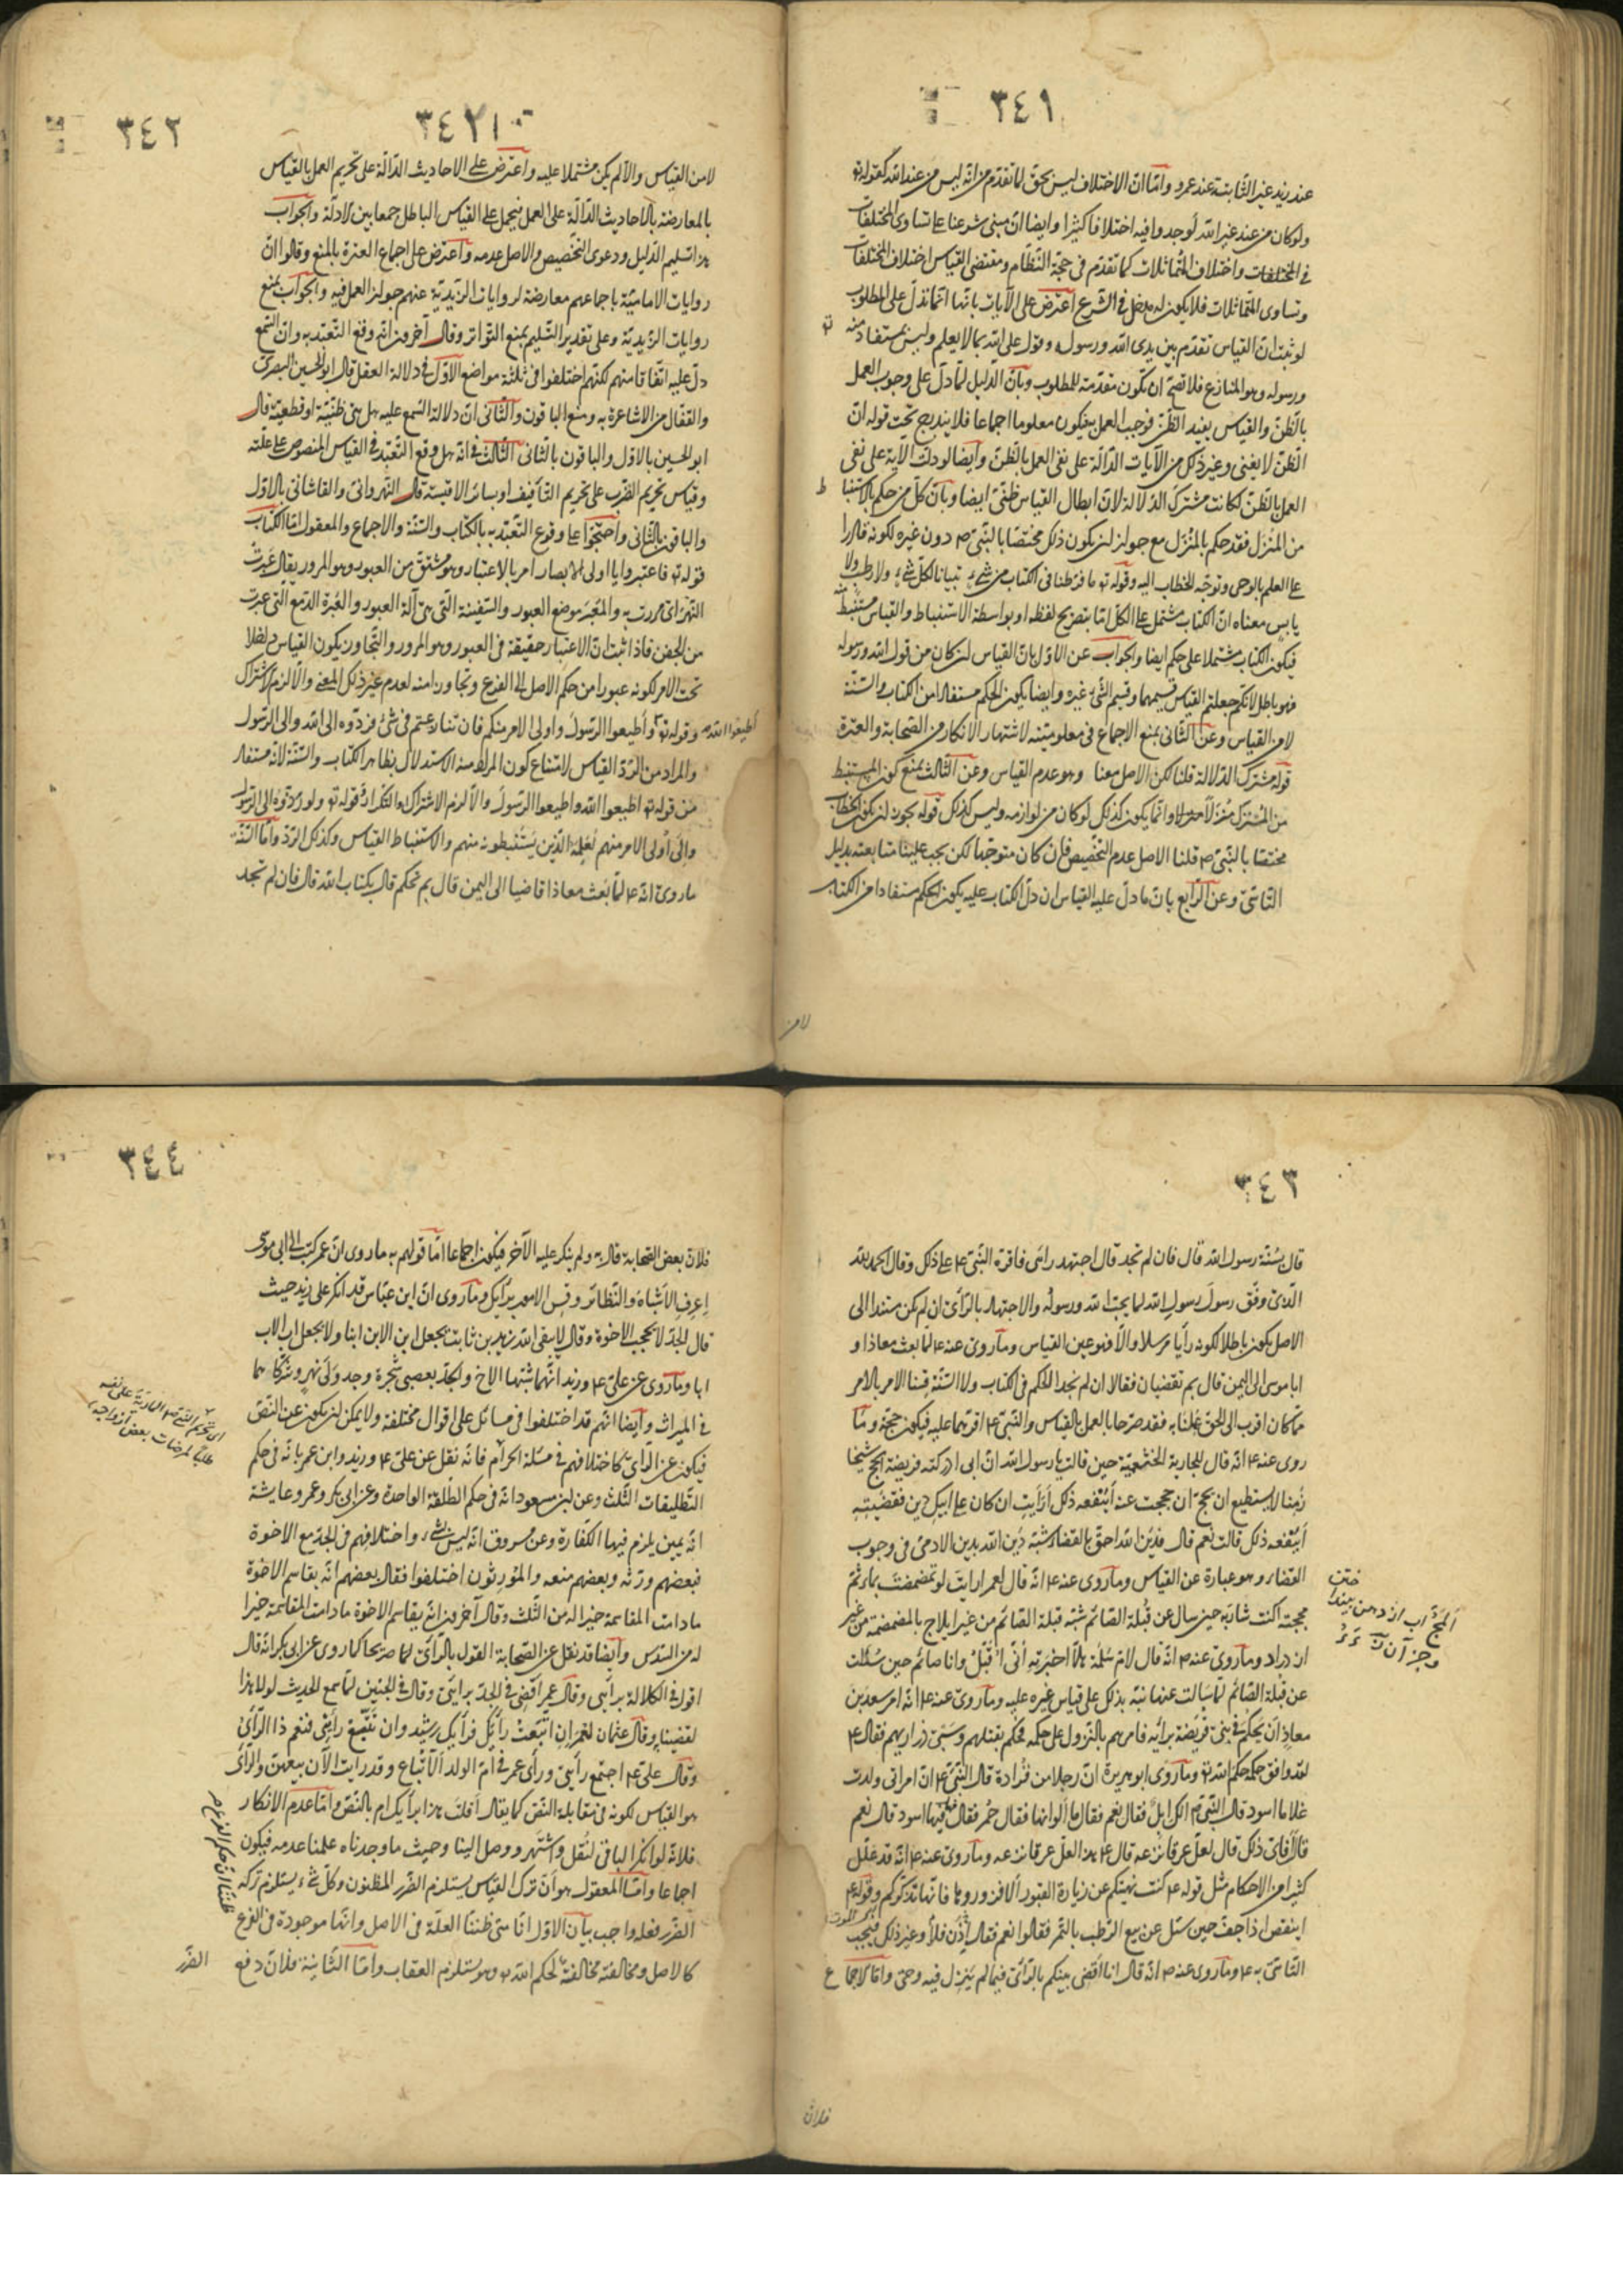 ٣٤١
عند زيد غير الثابتة عند عمرو وامّا انّ الاختلاف ليس بحق لما تقدّم من انّه ليس من عند الله كقوله تع
ولو كان من عند غير الله لوجدوا فيه اختلافا كثيرا وايضا انّ مبنى شرعنا على تساوى المختلفات
فى المختلفات واختلاف المتماثلات كما تقدّم فى حجّة النظّام ومقتضى القياس اختلاف المختلفات
وتساوى المتماثلات فلا يكون له مدخل فى الشرع اعترض على الآيات بانّها انّما تدلّ على المطلوب
لو ثبت ان القياس تقدّم بين يدى الله ورسوله وقول على الله بما لا يعلم وليس بمستفاد منه تع
ورسوله وهو المنازع فلا تصحّ ان تكون مقدّمة للمطلوب وبانّ الدليل لمّا دلّ على وجوب العمل
بالظنّ والقياس يفيد الظنّ فوجب العمل به فيكون معلوما اجماعا فلا يندرج تحت قوله انّ
الظنّ لا يغنى وغير ذلك من الآيات الدّالّة على نفى العمل بالظنّ وايضا لو دلّت الآية على نفى
العمل بالظنّ لكانت مشترك الدّلالة لانّ ابطال القياس ظنّىّ ايضا وبانّ كلّ من حكم بالاستنباط
من المنزل فقد حكم بالمنزل مع جواز ان يكون ذلك مختصّا بالنبىّ ص دون غيره لكونه قادرا
على العلم بالوحى وتوجّه الخطاب اليه وقوله تع ما فرّطنا فى الكتاب من شئ تبيانا لكلّ شئ ولا رطب ولا
يابس معناه انّ الكتاب مشتمل على الكلّ امّا بتصريح لفظه او بواسطة الاستنباط والقياس مستنبط منه
فيكون الكتاب مشتملا على حكمه ايضا والجواب عن الاوّل بانّ القياس ان كان من قول الله ورسوله
فهو باطل لانّكم جعلتم القياس قسيمهما وقسيم الشّئ غيره وايضا يكون الحكم مستفادا من الكتاب والسّنّة
لا من القياس وعن الثانى بمنع الاجماع فى معلوميّته لاشتهار الانكار من الصحابة والعترة
قوله مشترك الدّلالة قلنا لكن الاصل معنا وهو عدم القياس وعن الثالث بمنع كون المستنبط
من المنزل منزلا وانّما يكون كذلك لو كان من لوازمه وليس كذلك قوله يجوز ان يكون الخطاب
مختصّا بالنّبىّ ص قلنا الاصل عدم التخصيص فان كان متوجّها لكن يجب علينا متابعته بدليل
التّاسّى وعن الرّابع بانّ ما دلّ عليه القياس ان دلّ الكتاب عليه يكون الحكم مستفادا من الكتاب
لا من
٣٤٢
٣٤٢
لا من القياس والّا لم يكن مشتملا عليه واعترض على الاحاديث الدّالّة على تحريم العمل بالقياس
بالمعارضة بالاحاديث الدّالّة على العمل فيحمل على القياس الباطل جمعا بين الادلّة والجواب
هذا تسليم الدّليل ودعوى التخصيص والاصل عدمه واعترض على اجماع العترة بالمنع وقالوا انّ
روايات الاماميّة باجماعهم معارضة لروايات الزّيديّة عنهم جواز العمل فيه والجواب بمنع
روايات الزّيديّة وعلى تقدير التّسليم بمنع التّواتر وقال آخرون انّه وقع التّعبّد به وانّ السّمع
دلّ عليه اتّفاقا منهم لكنّهم اختلفوا فى ثلثة مواضع الاوّل فى دلالة العقل قال ابو الحسين البصرى
والقفّال من الاشاعرة به ومنع الباقون والثّانى انّ دلالة السّمع عليه هل هى ظنّيّة او قطعيّة قال
ابو الحسين بالاوّل والباقون بالثّانى الثّالث فى انّه هل وقع التّعبّد فى القياس المنصوص على علّته
وقياس تحريم الضّرب على تحريم التّأفيف او بسائر الاقيسة قال النّهروانىّ والقاشانى بالاوّل
والباقون بالثّانى واحتجّوا على وقوع التّعبّد به بالكتاب والسّنّة والاجماع والمعقول امّا الكتاب
قوله تع فاعتبروا يا اولى الابصار امر بالاعتبار وهو مشتقّ من العبور وهو المرور يقال عبرت
النّهر اى مررت به والمعبر موضع العبور والسّفينة التى هى آلة العبور والعبرة الدّمع التى عبرت
من الجفن فاذا ثبت انّ الاعتبار حقيقة فى العبور وهو المرور والتّجاوز يكون القياس داخلا
تحت الامر لكونه عبورا من حكم الاصل الى الفرع وتجاوزا منه لعدم غير ذلك المعنى والّا لزم الاشتراك
وقوله تع وأطيعوا الرّسول واولى الامر منكم فان تنازعتم فى شئ فردّوه الى الله والى الرّسول
أطيعوا الله
والمراد من الرّدّ القياس لامتناع كون المراد منه الاستدلال بظاهر الكتاب والسّنّة لانّه مستفاد
من قوله تع اطيعوا الله واطيعوا الرّسول والّا لزم الاشتراك والتّكرار وقوله تع ولو ردّوه الى الرّسول
والى أولى الامر منهم لعلمه الّذين يستنبطونه منهم والاستنباط القياس وكذلك الرّدّ وامّا السّنّة
ما روى انّه ع لمّا بعث معاذا قاضيا الى اليمن قال بم تحكم قال بكتاب الله قال فان لم تجد
٣٤٣
قال بسنّة رسول الله قال فان لم تجد قال اجتهد رائى فاقرّه النّبىّ ع على ذلك وقال الحمد لله
الّذى وفّق رسول رسول الله لما يحبّ الله ورسوله والاجتهاد بالرّأى ان لم يكن مستندا الى
الاصل يكون باطلا لكونه رأيا مرسلا والّا فهو عين القياس وما روى عنه ع لمّا بعث معاذا و
ابا موسى الى اليمن قال بم تقضيان فقالا ان لم نجد الحكم فى الكتاب ولا السّنّة قسنا الامر بالامر
فما كان اقرب الى الحقّ عملنا به فقد صرّحا بالعمل بالقياس والنّبىّ ع اقرّهما عليه فيكون حجّة وما
روى عنه ع انّه قال للجارية الخثعميّة حين قالت يا رسول الله انّ ابى ادركته فريضة الحجّ شيخا
زمنا لا يستطيع ان يحجّ ان حججت عنه أينفعه ذلك أرأيت ان كان على ابيك دين فقضيته
أينفعه ذلك قالت نعم قال فدين الله احقّ بالقضاء شبّه دين الله بدين الادمى فى وجوب
القضاء وهو عبارة عن القياس وما روى عنه ع انّه قال لعمر ارايت لو تمضمضت بماء ثمّ
مججته اكنت شاربه حين سال عن قبلة الصائم شبّه قبلة الصّائم من غير ايلاج بالمضمضة من غير
ازدراد وما روى عنه ص انّه قال لامّ سلمة هلّا اخبرته أنّى اقبّل وانا صائم حين سئلت
عن قبلة الصّائم لمّا سالت عنها نبّه بذلك على قياس غيره عليه وما روى عنه ع انّه امر سعد بن
معاذ أن يحكم فى بنى قريضة برائه فامرهم بالنّزول على حكمه فحكم بقتلهم وسبى ذراريهم فقال ع
لقد وافق حكمه حكم الله تع وما روى ابو هريرة انّ رجلا من فزارة قال للنّبىّ ع انّ امراتى ولدت
غلاما اسود قال النّبىّ ع الك ابل فقال نعم فقال ما ألوانها فقال حمر فقال هل فيها اسود قال نعم
قال فانّى ذلك قال لعلّ عرق نزعه قال ع هذا لعلّ عرقا نزعه وما روى عنه ع انّه قد علّل
كثيرا من الاحكام مثل قوله ع كنت نهيتكم عن زيارة القبور ألا فزوروها فانّها تذكّركم وقوله ع
اينقص اذا جفّ حين سئل عن بيع الرّطب بالتّمر فقالوا نعم فقال إذن فلا وغير ذلك فيجب
الموت
التّاسّى به ع وما روى عنه ص انّه قال انا اقضى بينكم بالرّأى فيما لم ينزل فيه وحى وامّا الاجماع
المجّ آب از دهن بيند
فلانّ
٣٤٤
فلانّ بعض الصّحابة قال به ولم ينكر عليه الآخر فيكون اجماعا امّا قولهم به ما روى انّ عمر كتب الى ابى موسى
اعرف الأشباه والنّظائر وقس الامور برأيك وما روى انّ ابن عبّاس قد انكر على زيد حيث
قال الجدّ لا يحجب الاخوة وقال لا يتّقى الله زيد بن ثابت يجعل ابن الابن ابنا ولا يجعل اب الاب
ابا وما روى عن علىّ ع وزيد انّهما شبّها الاخ والجدّ بغصنى شجرة وجدولى نهر وشرّكاهما
فى الميراث وأيضا انّهم قد اختلفوا فى مسائل على اقوال مختلفة ولا يمكن ان يكون عن النّصّ
فيكون عن الرّأى كاختلافهم فى مسئلة الحرام فانّه نقل عن علىّ ع وزيد وابن عمر بانّه فى حكم
التّطليقات الثّلث وعن ابن مسعود انّه فى حكم الطّلقة الواحدة وعن ابى بكر وعمر وعايشة
انّه يمين يلزم فيها الكفّارة وعن مسروق انّه ليس بشئ، واختلافهم فى الجدّ مع الاخوة
فبعضهم ورّثه وبعضهم منعه والمورّثون اختلفوا فقال بعضهم انّه يقاسم الاخوة
ما دامت المقاسمة خيرا له من الثّلث وقال آخرون انّه يقاسم الاخوة ما دامت المقاسمة خيرا
له من السّدس وأيضا قد نقل عن الصّحابة القول بالرّأى امّا صريحا كما روى عن ابى بكر انّه قال
اقول فى الكلالة برأيى وقال عمر اقضى فى الجدّ برأيى وقال فى الجنين لمّا سمع الحديث لولا هذا
لقضينا وقال عثمان لعمر ان اتّبعت رأيك فرأيك رشيد وان تتّبع رأى فنعم ذا الرّأى
وقال علىّ ع اجتمع رأيى ورأى عمر فى امّ الولد ألّا تباع وقد رايت الآن بيعهنّ والرّأى
هو القياس لكونه فى مقابلة النّصّ كما يقال أقلت هذا برأيك ام بالنّصّ وامّا عدم الانكار
فلانّه لو انكر الباقى لنقل واشتهر ووصل الينا وحيث ما وجدناه علمنا عدمه فيكون
اجماعا وامّا المعقول هو أنّ ترك القياس يستلزم الضّرر المظنون وكلّ شئ يستلزم تركه
الضّرر فعله واجب بيان الاوّل انّا متى ظننّا العلّة فى الاصل وانّها موجودة فى الفرع
كالاصل ومخالفته مخالفة لحكم الله تع وهو يستلزم العقاب وامّا الثّانية فلانّ دفع
الضّرر
ظننّا انّ حكم الفرع
طلبا لمرضات بعض ازواجه